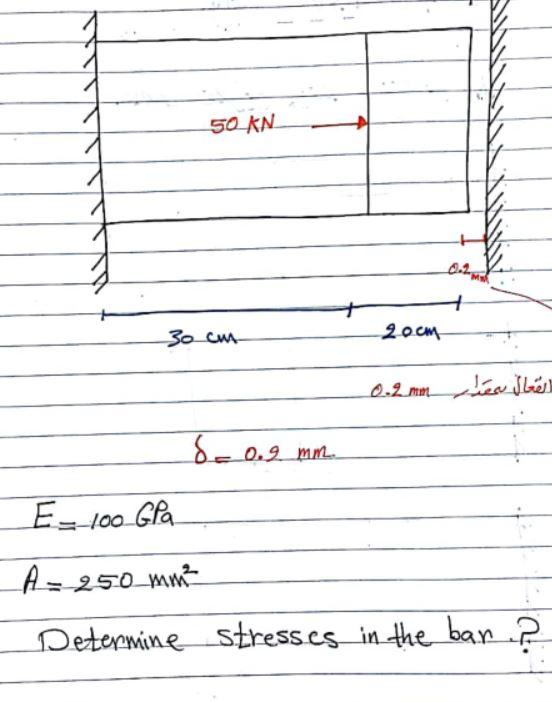 50 KN
0.2 mm
30 cm
20 cm
0.2 mm بمقدار
δ = 0.2 mm
E = 100 GPa
A = 250 mm²
Determine stresses in the bar ?